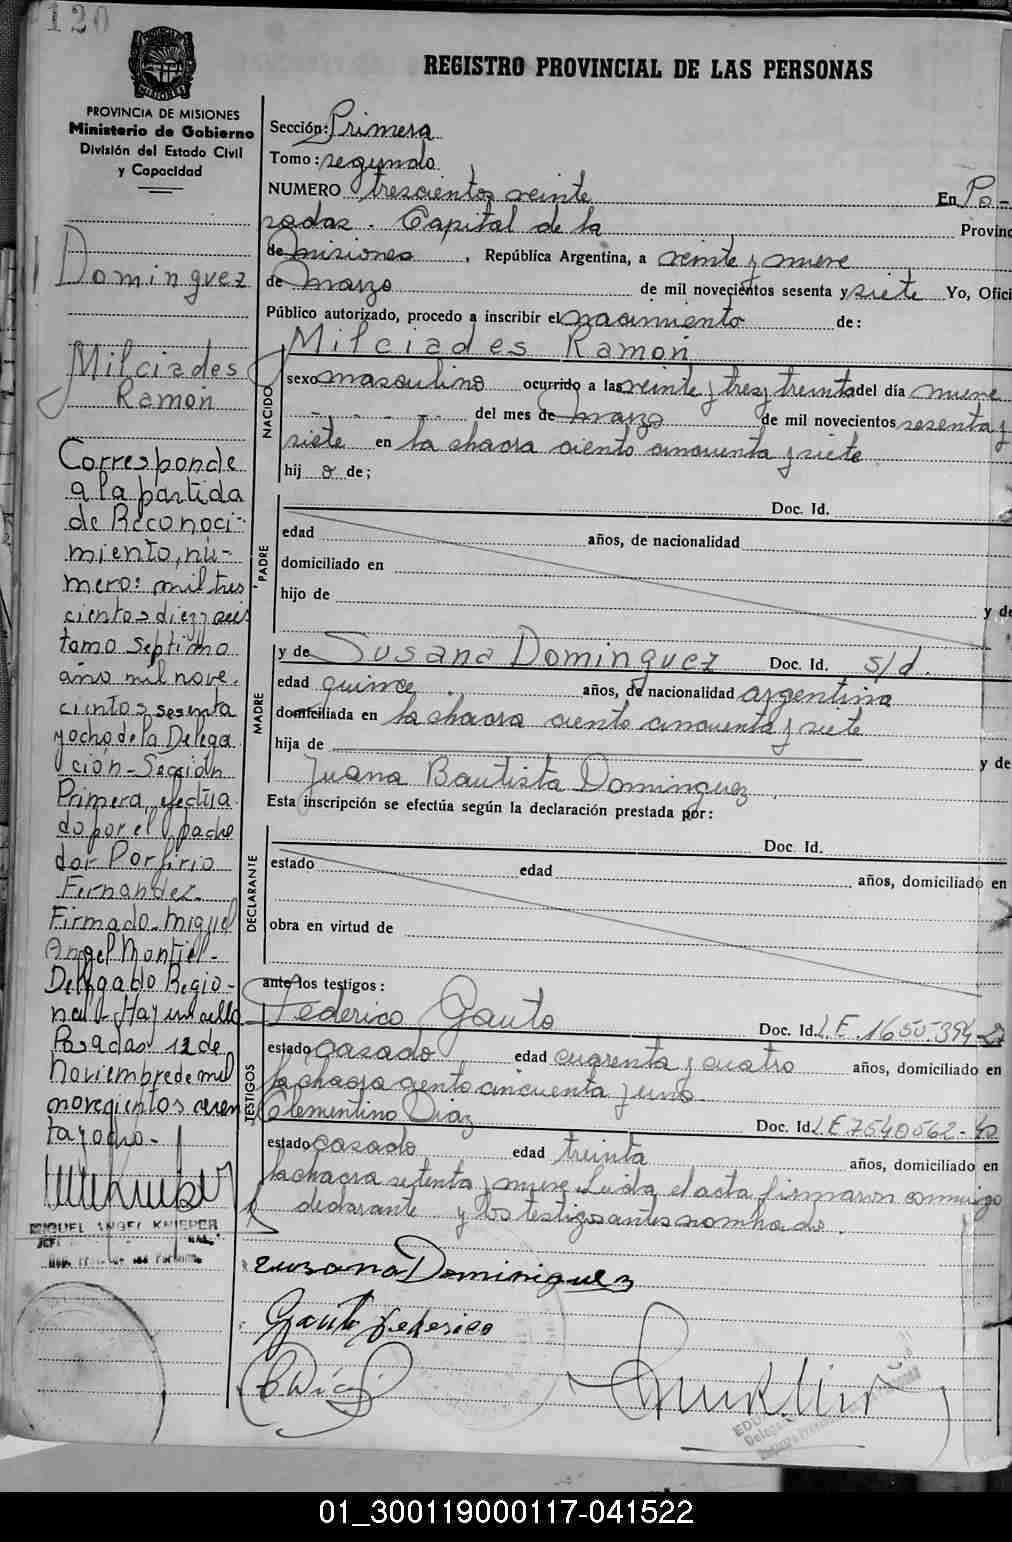 120
REGISTRO PROVINCIAL DE LAS PERSONAS
PROVINCIA DE MISIONES
Ministerio de Gobierno
División del Estado Civil
y Capacidad
Dominguez
Milciades
Ramon
Corresponde
a la partida
de Reconoci-
miento, nú-
mero: mil tres
cientos diez y seis
tomo septimo
año mil nove.
cientos sesenta
y ocho de la Delega
ción - Sección
Primera, efectua
do por el
dor Porfirio
Fernandez.
Firmado - Miguel
Angel Montiel -
Delegado Regio-
nal - Hay un sello
Posadas 12 de
Noviembre de mil
novecientos sesen
ta y ocho. -
MIGUEL ANGEL KNIEPER
Sección: Primera
Tomo: segundo
NUMERO trescientos veinte En Po-
sadas. Capital de la Provinc
de Misiones, República Argentina, a veinte y nueve
de marzo de mil novecientos sesenta y siete Yo, Ofici
Público autorizado, procedo a inscribir el nacimiento de:
NACIDO
Milciades Ramon
sexo masculino ocurrido a las veinte y tres y treinta del día nueve
del mes de marzo de mil novecientos sesenta y
siete en la chacra ciento cincuenta y siete
hij o de;
PADRE
Doc. Id.
edad años, de nacionalidad
domiciliado en
hijo de y de
MADRE
y de Susana Dominguez Doc. Id. s/d.
edad quince años, de nacionalidad argentina
domiciliada en la chacra ciento cincuenta y siete
hija de y de
Juana Bautista Dominguez
Esta inscripción se efectúa según la declaración prestada por:
DECLARANTE
Doc. Id.
estado edad años, domiciliado en
obra en virtud de
ante los testigos:
TESTIGOS
Federico Gauto Doc. Id. L.E. 1650.394
estado casado edad cuarenta y cuatro años, domiciliado en
la chacra ciento cincuenta y uno
Clementino Diaz Doc. Id. L.E 7540562
estado casado edad treinta años, domiciliado en
la chacra setenta y nueve. Leida el acta firmaron conmigo
declarante y los testigos antes nombrado.
Susana Dominiguez
Gauto Federico
C Diaz
01_300119000117-041522